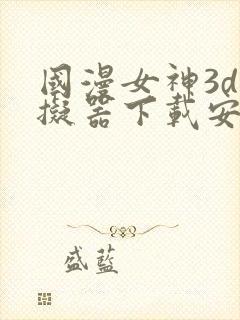 國漫女神3d
擬器下載安
盛藍